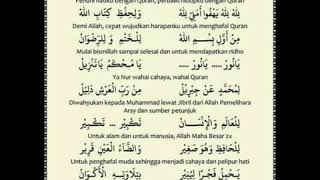 Penuhi hatiku dengan Quran, perbaiki hidupku dengan Quran
لِلّٰهِ لِلّٰهِ يَهْفُوْا أَمَلِيْ لِلّٰهِ وَلِحِفْظِ كِتَابِ اللّٰهِ
Demi Allah, cepat wujudkan harapanku untuk menghafal Quran
مِنْ أَوَّلِ بِسْمِ اللّٰهِ لِلْخَتْمِ وَ لِلرِّضْوَانْ
Mulai bismillah sampai selesai dan untuk mendapatkan ridho
يَا نُوْرْ ..... يَانُوْرْ ..... يَا مُحْكَمُ يَاتَنْزِيْلْ
Ya Nur wahai cahaya, wahai Quran
لِمُحَمَّدٍ عَنْ جِبْرِيْلْ مِنْ رَبِّ الْعَرْشِ دَلِيْلْ
Diwahyukan kepada Muhammad lewat Jibril dari Allah Pemelihara
Arsy dan sumber petunjuk
لِلْعَالَمِ وَالْإِنْسَانْ تَكْبِيْرْ ... تَكْبِيْرْ
Untuk alam dan untuk manusia, Allah Maha Besar 2x
لِلْحَافِظِ وَهُوَ صَغِيْرْ وَالضَّاءُ الْعَيْنِ قَرِيْرْ
Untuk penghafal muda sehingga menjadi cahaya dan pelipur hati
يَحْمِلُ فَجْرًا لِيُنِيْرْ بِتِلَاوَتِهِ الْأَكْوَانْ